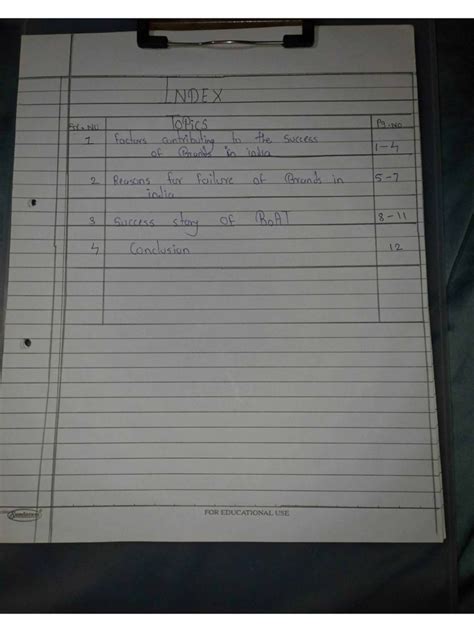 INDEX
Sr.No Topics Pg.No
1 Factors contributing to the Success
of Brands in india 1-4
2 Reasons for failure of Brands in 5-7
india
3 Success story of BoAT 8-11
4 Conclusion 12
Sundaram
FOR EDUCATIONAL USE